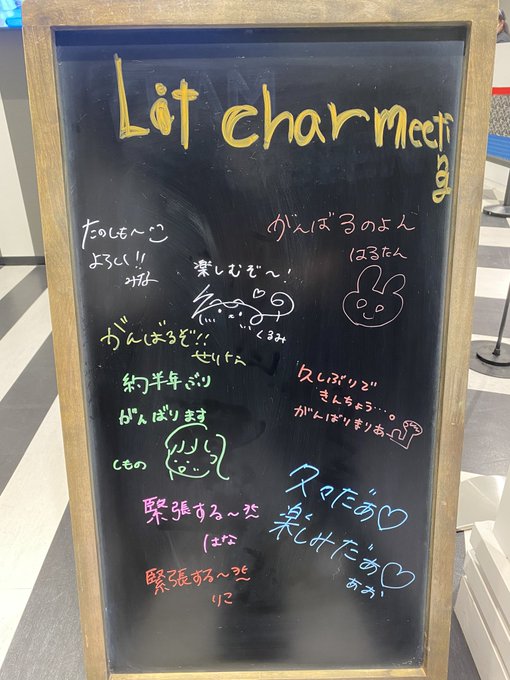 Lit charmeeting
たのしも〜
よろしく!!
みな
がんばるのよん
はるたん
楽しむぞ〜!
くるみ
がんばるぞ!!
せりな
約半年ぶり
がんばります
しもの
久しぶりで
きんちょう…。
がんばりまりあ
緊張する〜
はな
久々だぁ♡
楽しみだぁ♡
あお
緊張する〜
りこ